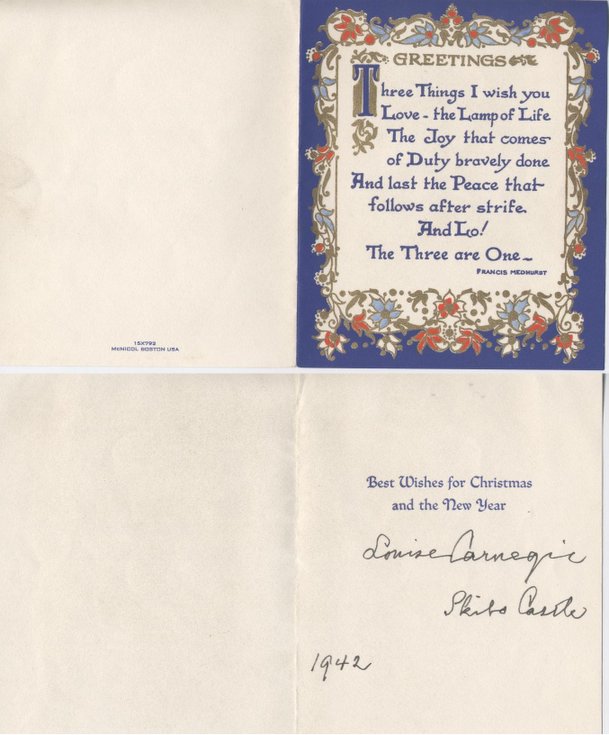 GREETINGS
Three Things I wish you
Love - the Lamp of Life
The Joy that comes
of Duty bravely done
And last the Peace that
follows after strife.
And Lo!
The Three are One
FRANCIS MEDHURST
15X792
McNICOL BOSTON USA
Best Wishes for Christmas
and the New Year
Louise Carnegie
Skibo Castle
1942